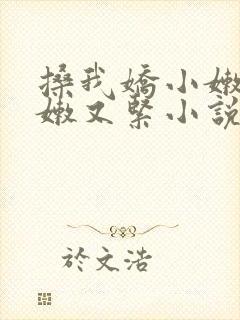 搡我嬌小嫩
嫩又緊小說
於文浩